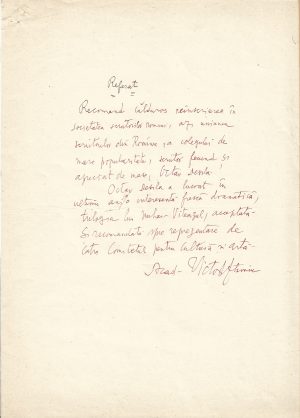 Referat
Recomand călduros reînscrierea în
societatea scriitorilor români, azi uniunea
scriitorilor din Române, a colegului de
mare popularitate, scriitor fecund și
apreciat de mase, Octav Desila!
Octav Desila a lucrat în
ultimii ani o interesantă frescă dramatică,
trilogia lui Mihai Viteazul, acceptată
și recomandată spre reprezentare de
către Comitetul pentru Cultură și artă.
Acad. Victor Eftimiu